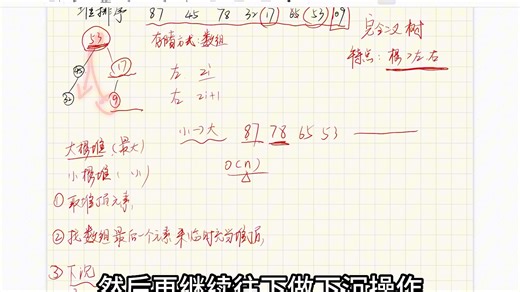 堆排序 87 45 78 32 (17) 65 (53) 09
53
17
9
32
存储方式:数组
左 2i
右 2i+1
完全二叉树
特点:根>左右
小→大 87 78 65 53
大根堆(最大)
小根堆( 小)
O(n)
①取堆顶元素,
②把数组最后一个元素来临时充当堆顶,
③下沉
然后再继续往下做下沉操作